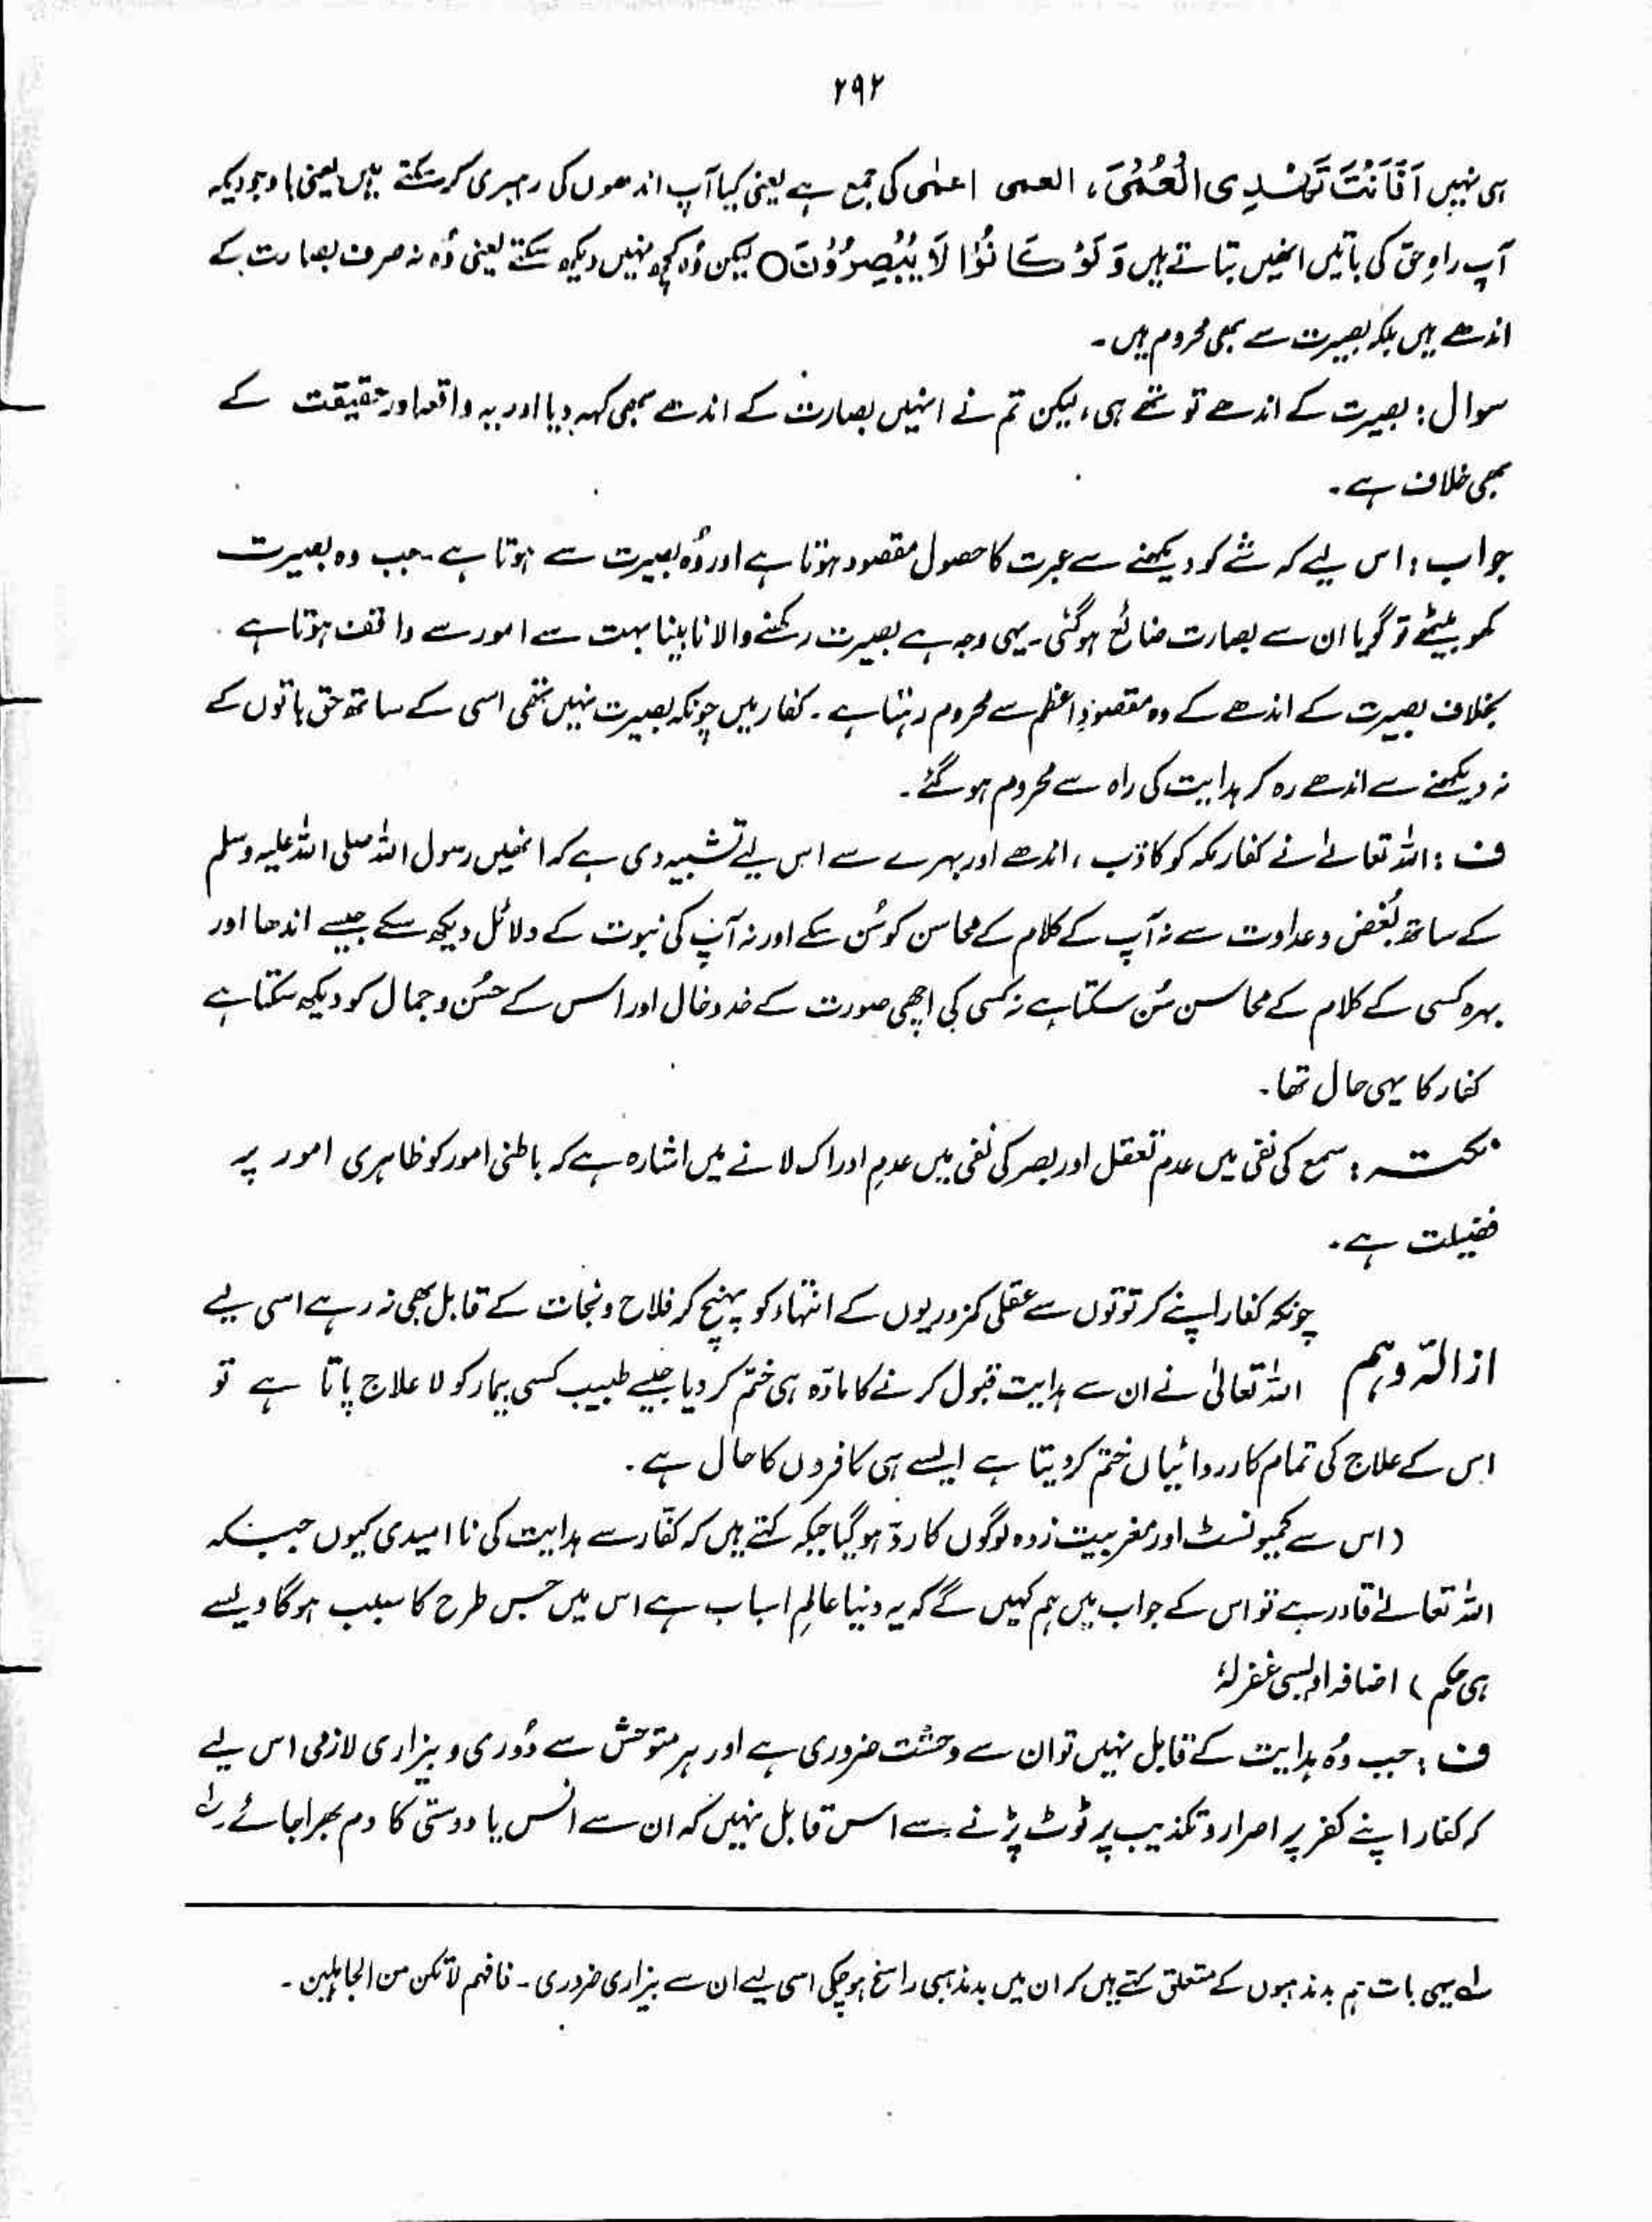 ۲۹۲
ہی نہیں اَفَاَنْتَ تَهْدِی الْعُمْیَ، العمی اعمٰی کی جمع ہے یعنی کیا آپ اندھوں کی رہبری کر سکتے ہیں یعنی باوجودیکہ
آپ راہِ حق کی باتیں انھیں بتاتے ہیں وَ لَوْ كَانُوْا لَا یُبْصِرُوْنَ○ لیکن وُہ کچھ نہیں دیکھ سکتے یعنی وُہ نہ صرف بصارت کے
اندھے ہیں بلکہ بصیرت سے بھی محروم ہیں۔
سوال : بصیرت کے اندھے تو تھے ہی، لیکن تم نے انہیں بصارت کے اندھے بھی کہہ دیا اور یہ واقعہ اور حقیقت کے
بھی خلاف ہے۔
جواب : اس لیے کہ شے کو دیکھنے سے عبرت کا حصول مقصود ہوتا ہے اور وُہ بصیرت سے ہوتا ہے۔ جب وہ بصیرت
کھو بیٹھے تو گویا ان سے بصارت ضائع ہو گئی۔ یہی وجہ ہے بصیرت رکھنے والا نابینا بہت سے امور سے واقف ہوتا ہے
بخلاف بصیرت کے اندھے کے وہ مقصودِ اعظم سے محروم رہتا ہے۔ کفار میں چونکہ بصیرت نہیں تھی اسی کے ساتھ حق باتوں کے
نہ دیکھنے سے اندھے رہ کر ہدایت کی راہ سے محروم ہو گئے۔
ف : اللہ تعالےٰ نے کفار مکہ کو کاذب، اندھے اور بہرے سے اس لیے تشبیہ دی ہے کہ انھیں رسول اللہ صلی اللہ علیہ وسلم
کے ساتھ بُغض و عداوت سے نہ آپ کے کلام کے محاسن کو سُن سکے اور نہ آپ کی نبوت کے دلائل دیکھ سکے جیسے اندھا اور
بہرہ کسی کے کلام کے محاسن سُن سکتا ہے نہ کسی کی اچھی صورت کے خد وخال اور اس کے حُسن و جمال کو دیکھ سکتا ہے
کفار کا یہی حال تھا۔
نکتہ : سمع کی نفی میں عدم تعقل اور بصر کی نفی میں عدمِ ادراک لانے میں اشارہ ہے کہ باطنی امور کو ظاہری امور پر
فضیلت ہے۔
چونکہ کفار اپنے کرتوتوں سے عقلی کمزوریوں کے انتہاء کو پہنچ کر فلاح و نجات کے قابل بھی نہ رہے اسی لیے
ازالۂ وہم اللہ تعالیٰ نے ان سے ہدایت قبول کرنے کا مادّہ ہی ختم کر دیا جیسے طبیب کسی بیمار کو لا علاج پاتا ہے تو
اس کے علاج کی تمام کارروائیاں ختم کر دیتا ہے ایسے ہی کافروں کا حال ہے۔
( اس سے کمیونسٹ اور مغربیت زدہ لوگوں کا ردّ ہو گیا جبکہ کہتے ہیں کہ کفّار سے ہدایت کی نا امیدی کیوں جبکہ
اللہ تعالےٰ قادر ہے تو اس کے جواب میں ہم کہیں گے کہ یہ دنیا عالمِ اسباب ہے اس میں جس طرح کا سبب ہو گا ویسے
ہی حکم ) اضافہ اویسی غفرلہٗ
ف : جب وُہ ہدایت کے قابل نہیں تو ان سے وحشت ضروری ہے اور ہر متوحش سے دُوری و بیزاری لازمی اس لیے
کہ کفار اپنے کفر پر اصرار و تکذیب پر ٹوٹ پڑنے سے اس قابل نہیں کہ ان سے انس یا دوستی کا دم بھرا جائے لہ
لہ یہی بات ہم بدمذہبوں کے متعلق کہتے ہیں کہ ان میں بدمذہبی راسخ ہو چکی اسی لیے ان سے بیزاری ضروری۔ فافہم لا تکن من الجاہلین۔